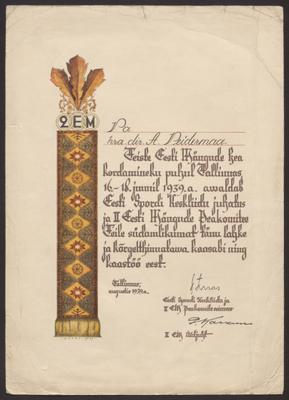 2EM
Pa
hra. dir. A. Peidermaa.
Teiste Eesti Mängude hea
kordamineku puhul Tallinnas
16-18. juunil 1939.a. avaldab
Eesti Spordi Keskliidu juhatus
ja II Eesti Mängude Peakomitee
Teile südamlikumat tänu lahke
ja kõrgelthinnatava kaasabi ning
kaastöö eest.
Tallinnas,
augustis 1939.a.
Eesti Spordi Keskliidu ja
II EM Peakomitee esimees
II EM üldjuht